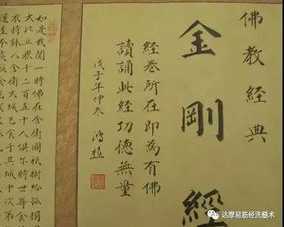 佛教經典
金剛經
經卷所在即為有佛
讀誦此經功德無量
戊子年仲冬
如是我聞一時佛在舍衛國祇樹給孤獨
大比丘衆千二百五十人俱爾時世尊食
衣持鉢入舍衛大城乞食于其城中次第
达摩易筋经